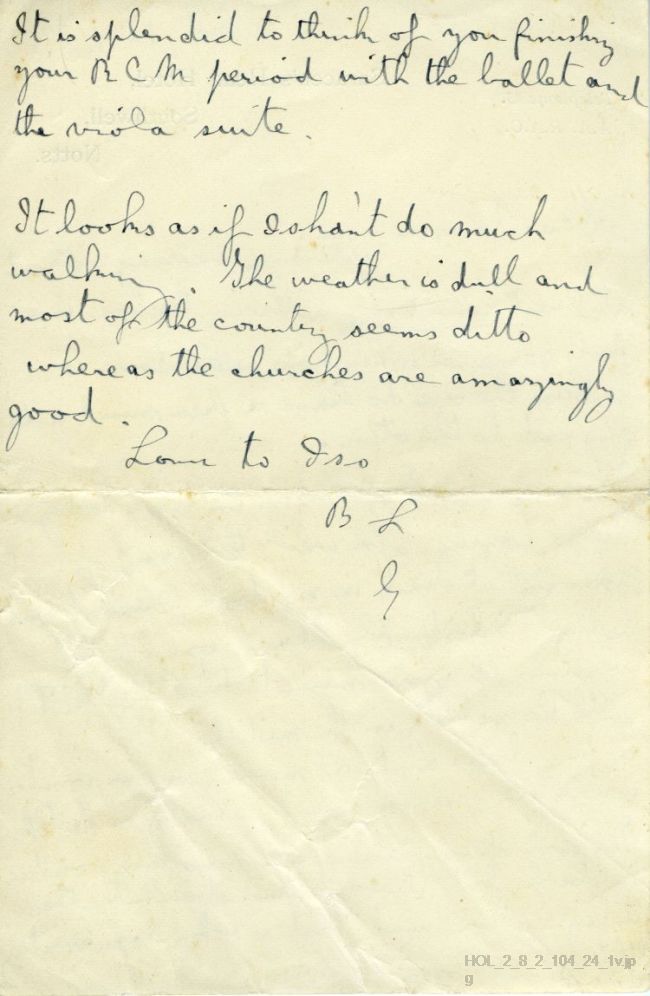 It is splendid to think of you finishing
your R C M period with the ballet and
the viola suite.
It looks as if I shan't do much
walking. The weather is dull and
most of the country seems ditto
whereas the churches are amazingly
good.
Love to Iso
B L
G
Southwell.
Notts.
HOL_2_8_2_104_24_1v.jp
g